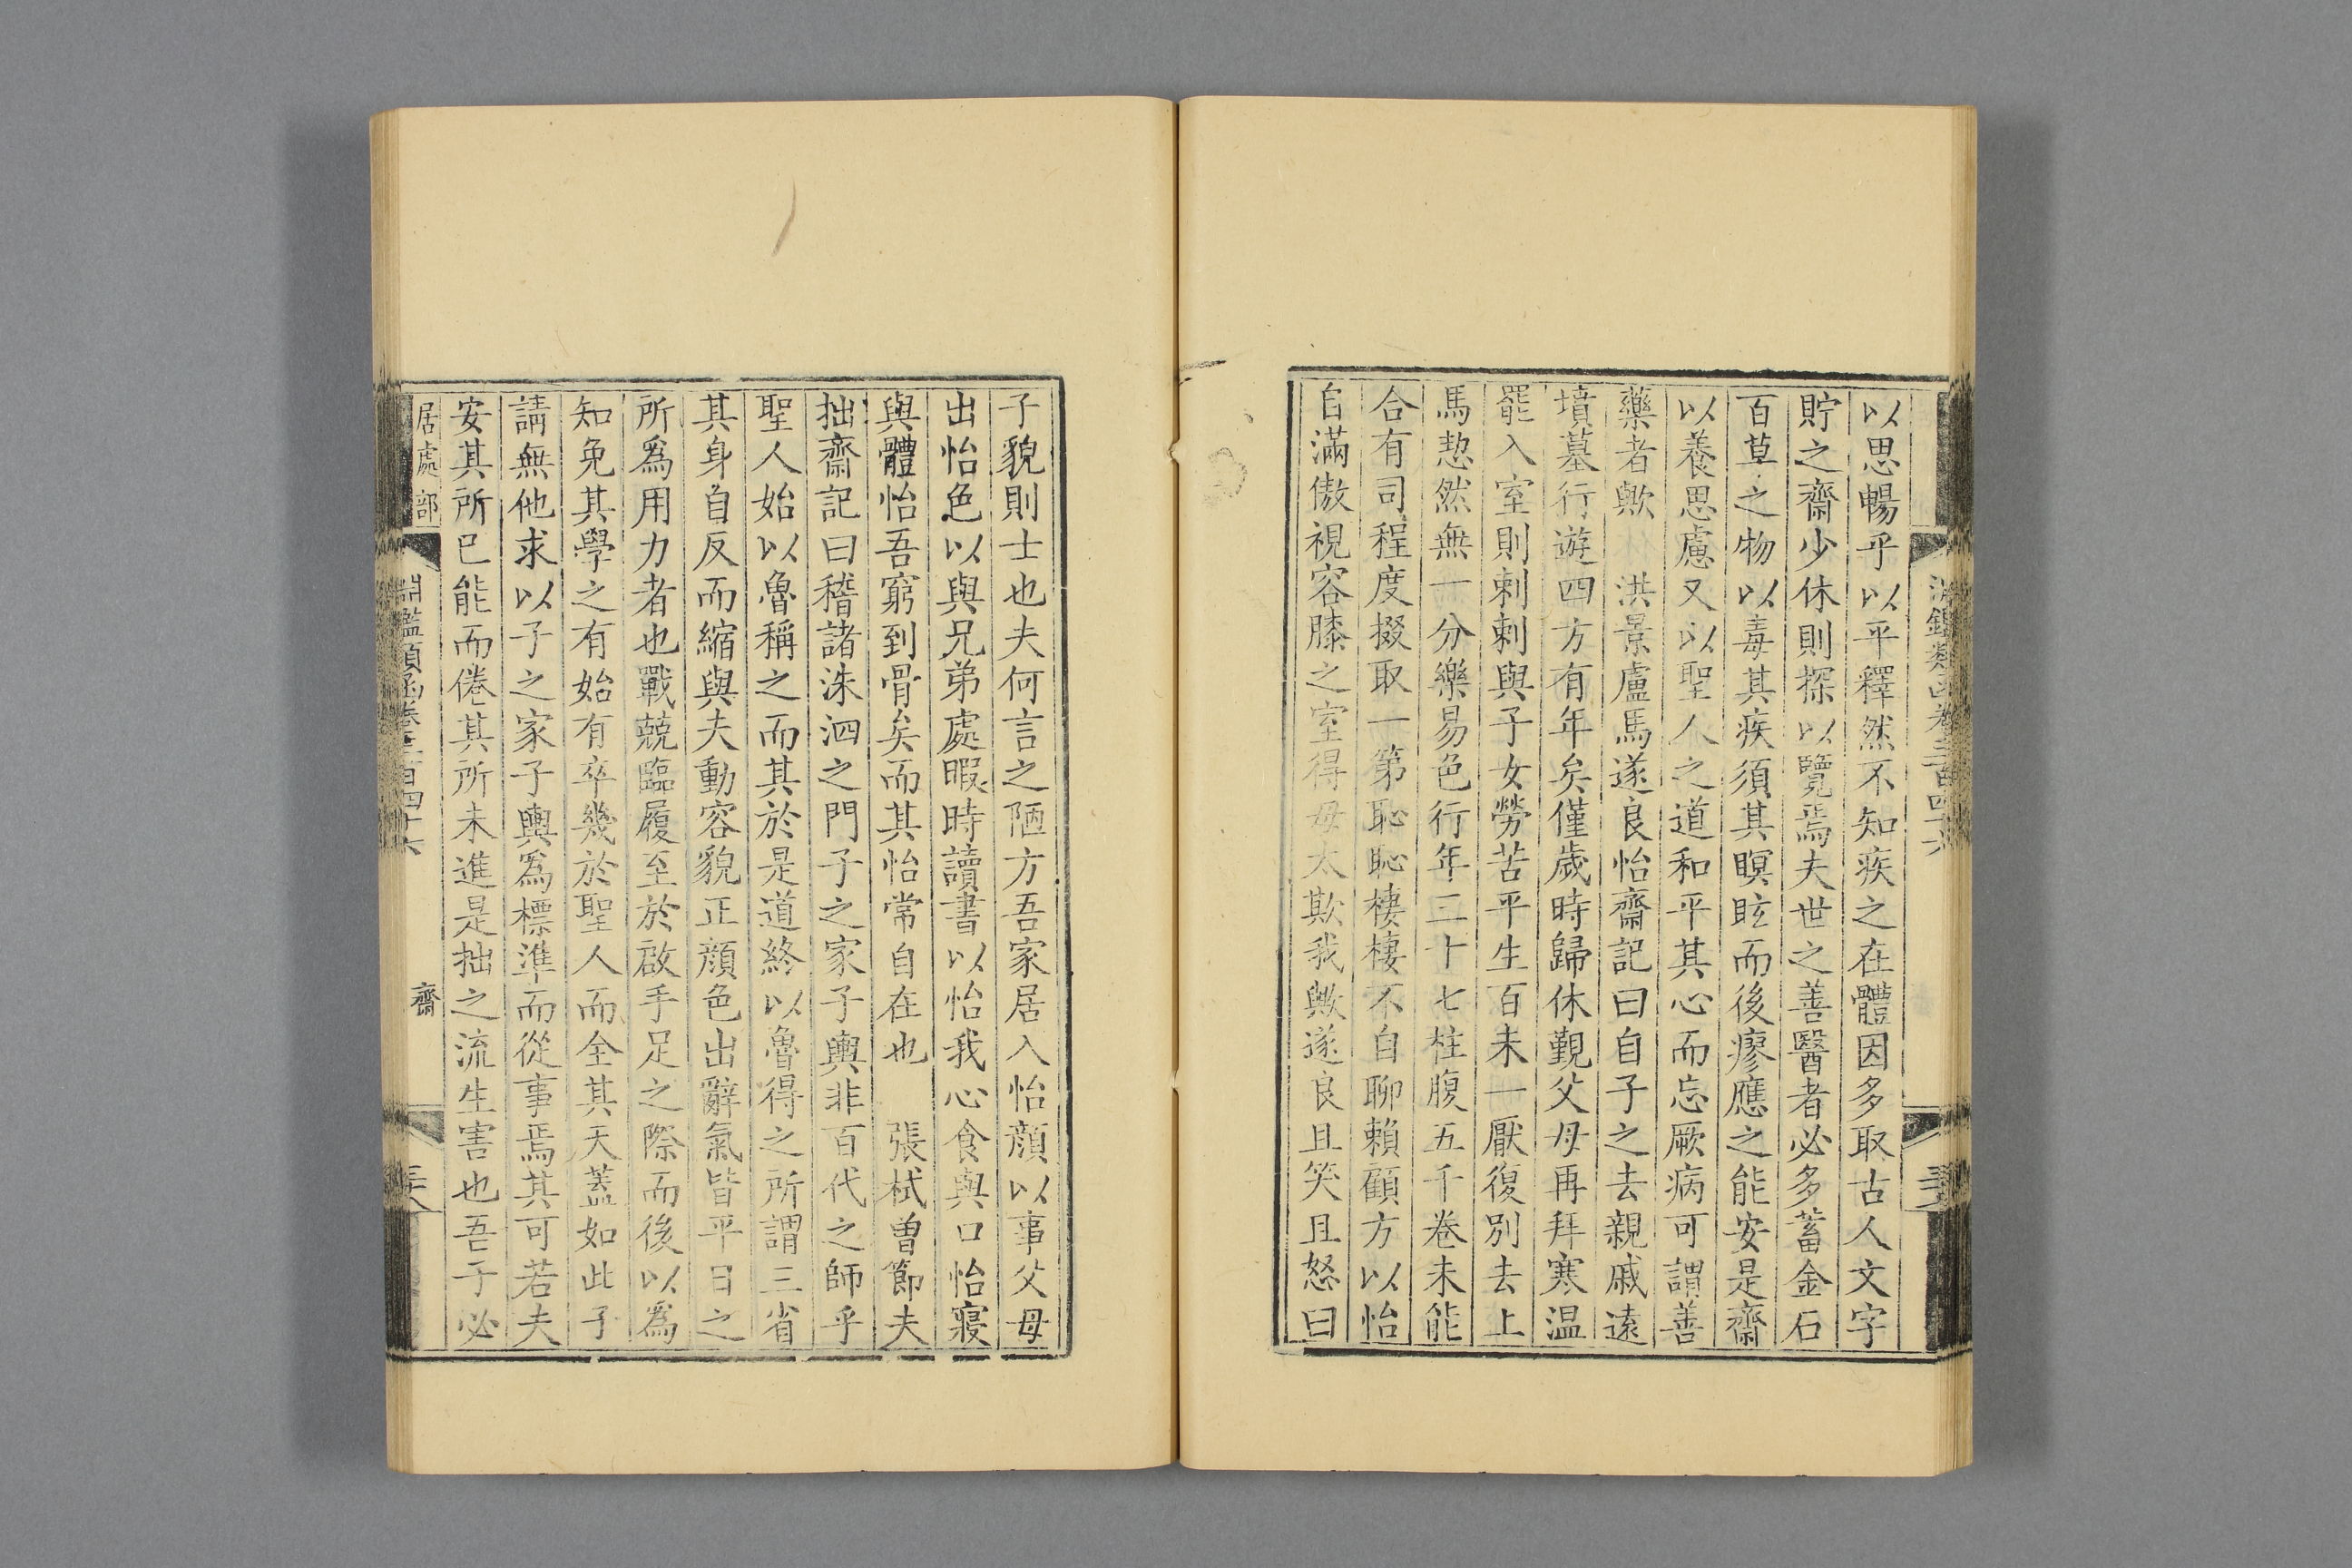 以思暢乎以平釋然不知疾之在體因多取古人文字
貯之齋少休則探以覽焉夫世之善醫者必多蓄金石
百草之物以毒其疾須其瞑眩而後瘳應之能安是齋
以養思慮又以聖人之道和平其心而忘厥病可謂善
藥者歟　洪景盧馬遂良怡齋記曰自子之去親戚遠
墳墓行遊四方有年矣僅歲時歸休覲父母再拜寒温
罷入室則刺刺與子女勞苦平生百未一厭復別去上
馬愸然無一分樂易色行年二十七柱腹五千卷未能
合有司程度掇取一第恥恥棲棲不自聊賴顧方以怡
自滿傲視容膝之室得毋太欺我歟遂良且笑且怒曰
子貌則士也夫何言之陋方吾家居入怡顏以事父母
出怡色以與兄弟處暇時讀書以怡我心食與口怡寢
與體怡吾窮到骨矣而其怡常自在也　張栻曾節夫
拙齋記曰稽諸洙泗之門子之家子輿非百代之師乎
聖人始以魯稱之而其於是道終以魯得之所謂三省
其身自反而縮與夫動容貌正顏色出辭氣皆平日之
所爲用力者也戰兢臨履至於啟手足之際而後以爲
知免其學之有始有卒幾於聖人而全其天蓋如此子
請無他求以子之家子輿爲標準而從事焉其可若夫
安其所已能而倦其所未進是拙之流生害也吾子必
居處部
淵鑑類函卷三百四十六
齋